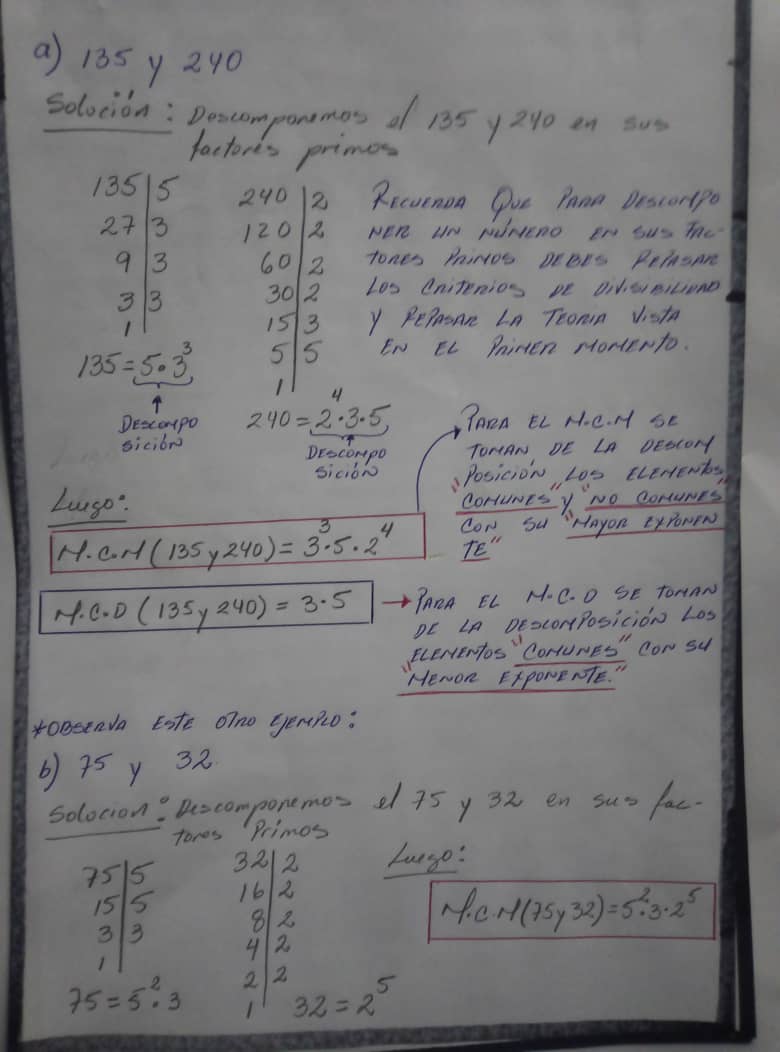 a) 135 y 240
Solución: Descomponemos el 135 y 240 en sus
factores primos
135 | 5
27 | 3
9 | 3
3 | 3
1
135 = 5·3³
DESCOMPO
SICIÓN
240 | 2
120 | 2
60 | 2
30 | 2
15 | 3
5 | 5
1
240 = 2⁴·3·5
DESCOMPO
SICIÓN
RECUERDA QUE PARA DESCOMPO
NER UN NÚMERO EN SUS FAC-
TORES PRIMOS DEBES REPASAR
LOS CRITERIOS DE DIVISIBILIDAD
Y REPASAR LA TEORIA VISTA
EN EL PRIMER MOMENTO.
Luego:
M.C.M (135 y 240) = 3³·5·2⁴
PARA EL M.C.M SE
TOMAN, DE LA DESCOM
POSICIÓN LOS ELEMENTOS
"COMUNES" Y "NO COMUNES"
CON SU "MAYOR EXPONEN
TE"
M.C.D (135 y 240) = 3·5
PARA EL M.C.D SE TOMAN
DE LA DESCOMPOSICIÓN LOS
ELEMENTOS "COMUNES" CON SU
"MENOR EXPONENTE."
*OBSERVA ESTE OTRO EJEMPLO:
b) 75 y 32.
Solocion: Descomponemos el 75 y 32 en sus fac-
tores Primos
75 | 5
15 | 5
3 | 3
1
75 = 5²·3
32 | 2
16 | 2
8 | 2
4 | 2
2 | 2
1
32 = 2⁵
Luego:
M.C.M (75 y 32) = 5²·3·2⁵